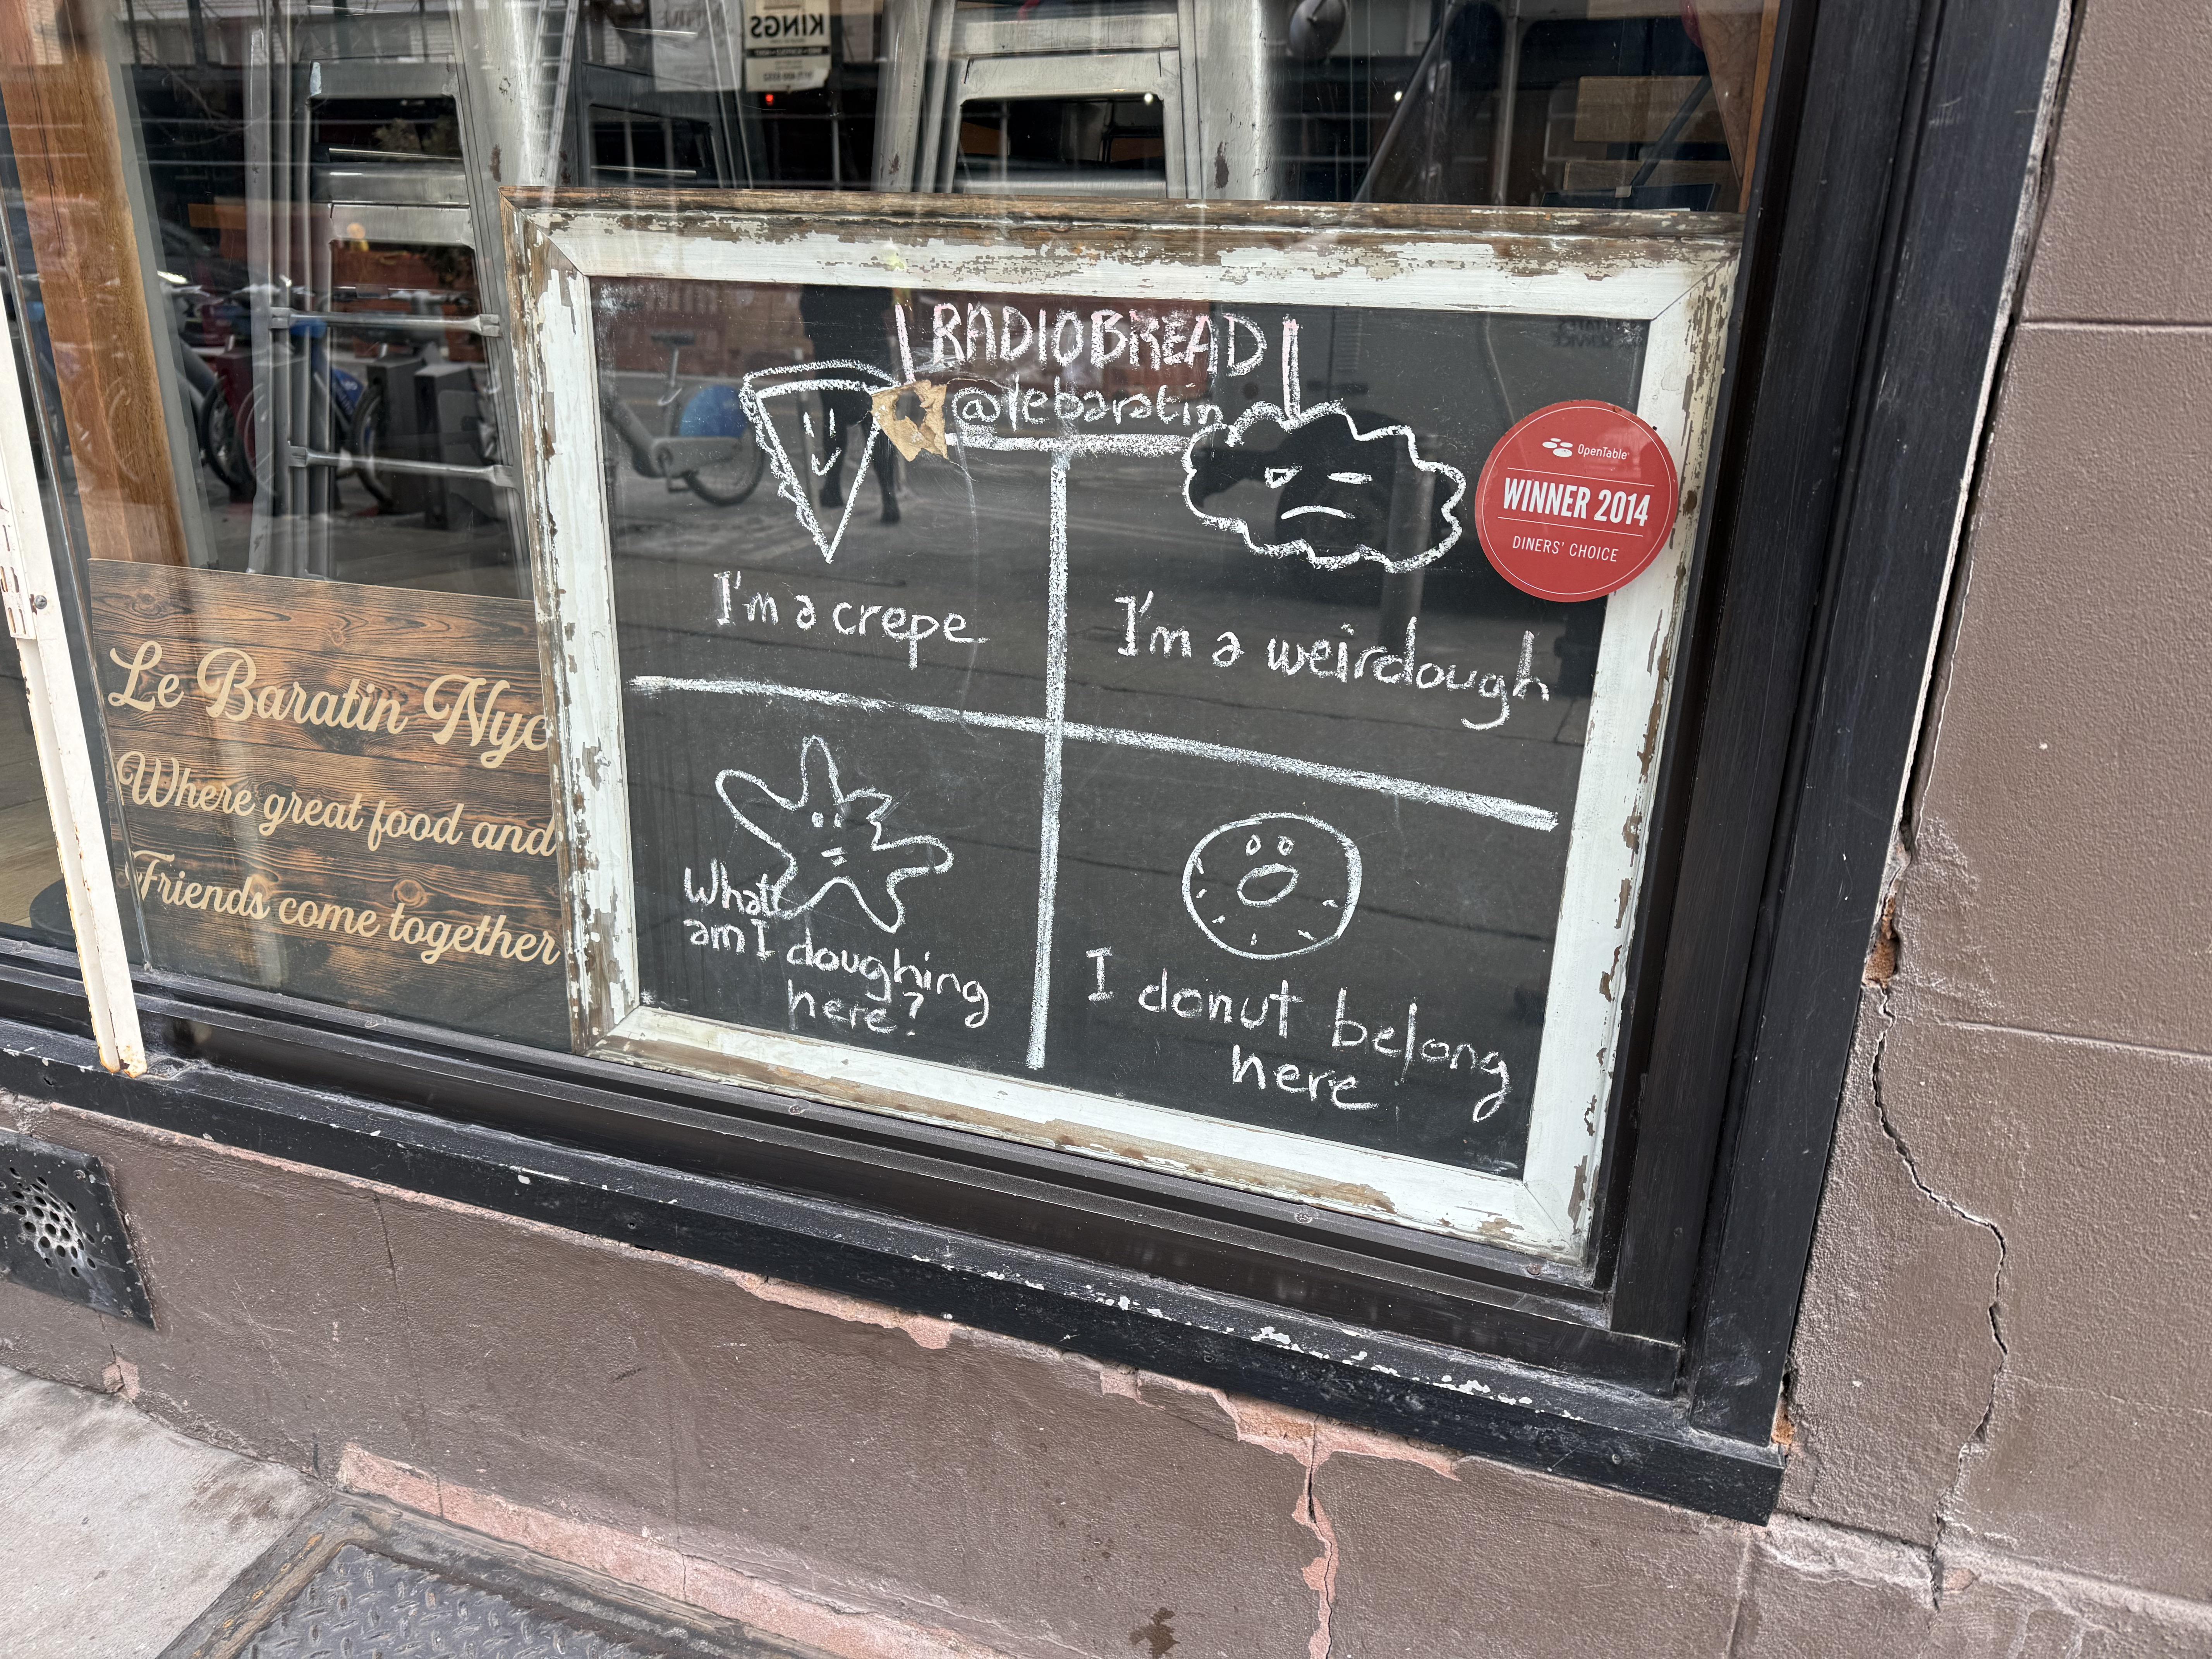 KINGS
RADIOBREAD
@lebaratin
I'm a crepe
I'm a weirdough
What
am I doughing
here?
I donut belong
here
OpenTable
WINNER 2014
DINERS' CHOICE
Le Baratin Nyc
Where great food and
Friends come together